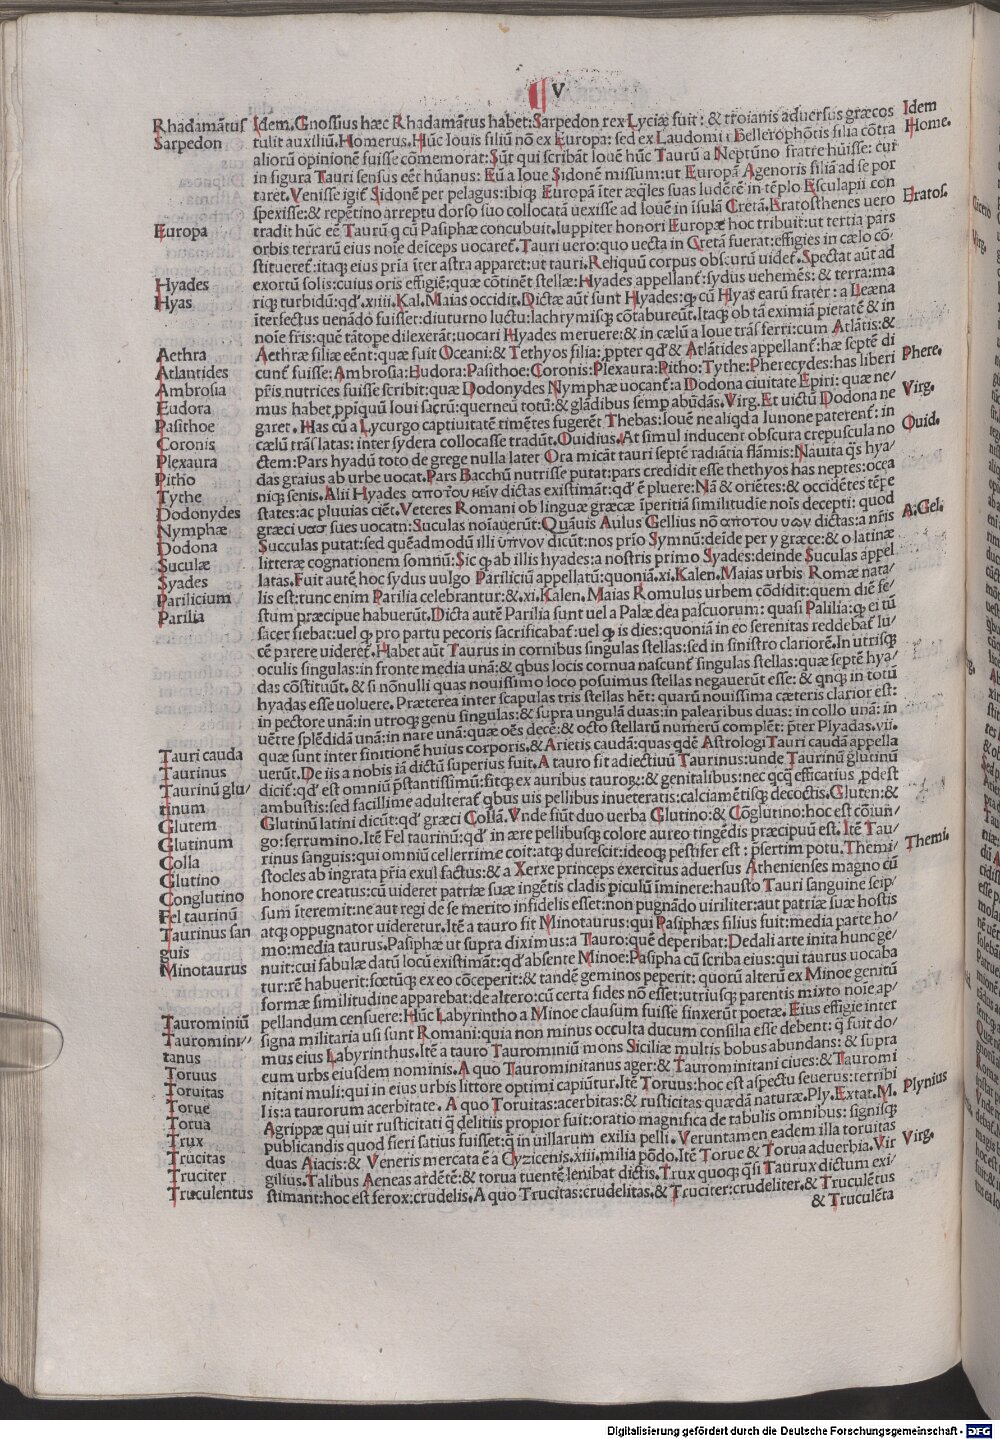 V
Rhadamãtus Idem. Gnossius hæc Rhadamãtus habet: Sarpedon rex Lyciæ fuit: & troianis aduersus græcos Idem
Sarpedon tulit auxiliũ. Homerus. Hũc Iouis filiũ nõ ex Europa: sed ex Laudomia Bellerophõtis filia cõtra Home.
aliorũ opinionẽ fuisse cõmemorat: Sũt qui scribãt Iouẽ hũc Taurũ a Neptũno fratre hũisse: cur
in figura Tauri sensus eẽt hũanus: Eũ a Ioue Sidonẽ missum: ut Europã Agenoris filiã ad se por
taret. Venisse igit̃ Sidonẽ per pelagus: ibiq; Europã ĩter æq̃les suas ludẽrẽ in tẽplo Esculapii con
spexisse: & repẽtino arreptu dorso suo collocatã uexisse ad Iouẽ in ĩsulã Cretã. Eratosthenes uero Eratos.
Europa tradit hũc eẽ Taurũ q cũ Pasiphæ concubuit. Iuppiter honori Europæ hoc tribuit: ut tertia pars
orbis terrarũ eius noĩe deĩceps uocaret̃. Tauri uero: quo uecta in Cretã fuerat: effigies in cælo cõ
stitueret̃: itaq; eius pria ĩter astra apparet: ut tauri. Reliquũ corpus obscurũ uidet̃. Spectat aũt ad
Hyades exortũ solis: cuius oris effigiẽ: quæ cõtinẽt stellæ: Hyades appellant̃: sydus uehemẽs: & terra: ma
Hyas riq; turbidũ: qd̃. xiiii. Kal. Maias occidit. Dictæ aũt sunt Hyades: q; cũ Hyas earũ frater: a Leæna
ĩterfectus uenãdo fuisset: diuturno luctu: lachrymisq; cõtabureũt. Itaq; ob tã eximiã pietatẽ & in
noĩe fr̃is: quẽ tãtope dilexerãt: uocari Hyades meruere: & in cælũ a Ioue trãsferri: cum Atlãtis: &
Aethra Aethræ filiæ eẽnt: quæ fuit Oceani: & Tethyos filia: ꝓpter qd̃ & Atlãtides appellant̃: hæ septẽ di
Atlantides cunt̃ fuisse: Ambrosia: Eudora: Pasithoe: Coronis: Plexaura: Pitho: Tythe: Pherecydes: has liberi Phere.
Ambrosia pr̃is nutrices fuisse scribit: quæ Dodonydes Nymphæ uocant̃: a Dodona ciuitate Epiri: quæ ne/
Eudora mus habet ꝓpĩquũ Ioui sacrũ: querneũ totũ: & glãdibus semp abũdãs. Virg. Et uictũ Dodona ne Virg.
Pasithoe garet. Has cũ a Lycurgo captiuitatẽ timẽtes fugerẽt Thebas: Iouẽ ne aliqd a Iunone paterent̃: in
Coronis cælũ trãslatas: inter sydera collocasse tradũt. Ouidius. At simul inducent obscura crepuscula no Ouid.
Plexaura ctem: Pars hyadũ toto de grege nulla latet Ora micãt tauri septẽ radiãtia flãmis: Nauita q̃s hya/
Pitho das graius ab urbe uocat. Pars Bacchũ nutrisse putat: pars credidit esse thethyos has neptes: ocea
Tythe niq; senis. Alii Hyades απο του υειν dictas existimãt: qd̃ ẽ pluere: Nã & oriẽtes: & occidẽtes tẽpe
Dodonydes states: ac pluuias ciẽt. Veteres Romani ob linguæ græcæ ĩperitiã similitudie noĩs decepti: quod
Nymphæ græci υασ sues uocatn: Suculas noĩauerũt: Quãuis Aulus Gellius nõ απο του υων dictas: a nr̃is A: Gel.
Dodona Succulas putat: sed quẽadmodũ illi υπνον dicũt: nos prio Symnũ: deĩde per y græce: & o latinæ
Suculæ litteræ cognationem somnũ: Sic q; ab illis hyades: a nostris primo Syades: deinde Suculas appel
Syades latas. Fuit autẽ hoc sydus uulgo Pariliciũ appellatũ: quoniã. xi. Kalen. Maias urbis Romæ nata/
Parilicium lis est: tunc enim Parilia celebrantur: & .xi. Kalen. Maias Romulus urbem cõdidit: quem diẽ fe/
Parilia stum præcipue habuerũt. Dicta autẽ Parilia sunt uel a Palæ dea pascuorum: quasi Palilia: q; ei tũ
sacer fiebat: uel q; pro partu pecoris sacrificabat̃: uel q; is dies: quoniã in eo serenitas reddebat̃ lu/
cẽ parere uideret̃. Habet aũt Taurus in cornibus singulas stellas: sed in sinistro clariorẽ. In utrisq;
oculis singulas: in fronte media unã: & qbus locis cornua nascunt̃ singulas stellas: quæ septẽ hya/
das cõstituũt. & si nõnulli quas nouissimo loco posuimus stellas negauerũt esse: & qnq; in totũ
hyadas esse uoluere. Præterea inter scapulas tris stellas hẽt: quarũ nouissima cæteris clarior est:
in pectore unã: in utroq; genu singulas: & supra ungulã duas: in palearibus duas: in collo unã: in
uẽtre splẽdidã unã: in nare unã: quæ oẽs decẽ: & octo stellarũ numerũ complẽt: p̃ter Plyadas. vii.
Tauri cauda quæ sunt inter finitionẽ huius corporis. & Arietis caudã: quas qdẽ Astrologi Tauri caudã appella
Taurinus uerũt. De iis a nobis iã dictũ superius fuit. A tauro fit adiectiuũ Taurinus: unde Taurinũ glutinũ
Taurinũ glu/ dicit̃: qd̃ est omniũ p̃stantissimũ: fitq; ex auribus taurog;: & genitalibus: nec qcq̃ efficatius ꝓdest
tinum ambustis: sed facillime adulterat̃ qbus uis pellibus inueteratis: calciamẽtisq; decoctis. Gluten: &
Glutem Glutinũ latini dicũt: qd̃ græci Collã. Vnde fiũt duo uerba Glutino: & Cõglutino: hoc est cõiun/
Glutinum go: ferrumino. Itẽ Fel taurinũ: qd̃ in ære pellibusq; colore aureo tingẽdis præcipuũ est. Itẽ Tau/
Colla rinus sanguis: qui omniũ cellerrime coit: atq; durescit: ideoq; pestifer est: p̃sertim potu. Themi/ Themi.
Glutino stocles ab ingrata pr̃ia exul factus: & a Xerxe princeps exercitus aduersus Athenienses magno cũ
Conglutino honore creatus: cũ uideret patriæ suæ ingẽtis cladis piculũ ĩminere: hausto Tauri sanguine seip/
Fel taurinũ sum ĩteremit: ne aut regi de se merito infidelis esset: non pugnãdo uiriliter: aut patriæ suæ hostis
Taurinus san atq; oppugnator uideretur. Itẽ a tauro fit Minotaurus: qui Pasiphæs filius fuit: media parte ho/
guis mo: media taurus. Pasiphæ ut supra diximus: a Tauro: quẽ deperibat: Dedali arte inita hunc ge/
Minotaurus nuit: cui fabulæ datũ locũ existimãt: qd̃ absente Minoe: Pasipha cũ scriba eius: qui taurus uocaba
tur: rẽ habuerit: fœtũq; ex eo cõceperit: & tandẽ geminos peperit: quorũ alterũ ex Minoe genitũ
formæ similitudine apparebat: de altero: cũ certa fides nõ esset: utriusq; parentis mixto noĩe ap/
Taurominiũ pellandum censuere: Hũc Labyrintho a Minoe clausum fuisse finxerũt poetæ. Eius effigie inter
Tauromini/ signa militaria usi sunt Romani: quia non minus occulta ducum consilia esse debent: q̃ fuit do/
tanus mus eius Labyrinthus. Itẽ a tauro Taurominiũ mons Siciliæ multis bobus abundans: & supra
Toruus eum urbs eiusdem nominis. A quo Taurominitanus ager: & Taurominitani ciues: & Tauromi
Toruitas nitani muli: qui in eius urbis littore optimi capiũtur. Itẽ Toruus: hoc est aspectu seuerus: terribi
Torue lis: a taurorum acerbitate. A quo Toruitas: acerbitas: & rusticitas quædã naturæ. Ply. Extat. M. Plynius
Torua Agrippæ qui uir rusticitati q̃ delitiis propior fuit: oratio magnifica de tabulis omnibus: signisq;
Trux publicandis quod fieri satius fuisset: q̃ in uillarum exilia pelli. Veruntamen eadem illa toruitas
Trucitas duas Aiacis: & Veneris mercata ẽ a Cyzicenis. xiii. milia põdo. Itẽ Torue & Torua aduerbia. Vir Virg.
Truciter gilius. Talibus Aeneas ardẽtẽ: & torua tuentẽ lenibat dictis. Trux quoq; q̃si Taurux dictum exi/
Truculentus stimant: hoc est ferox: crudelis. A quo Trucitas: crudelitas. & Truciter: crudeliter. & Truculẽtus
& Truculẽta
Digitalisierung gefördert durch die Deutsche Forschungsgemeinschaft - DFG